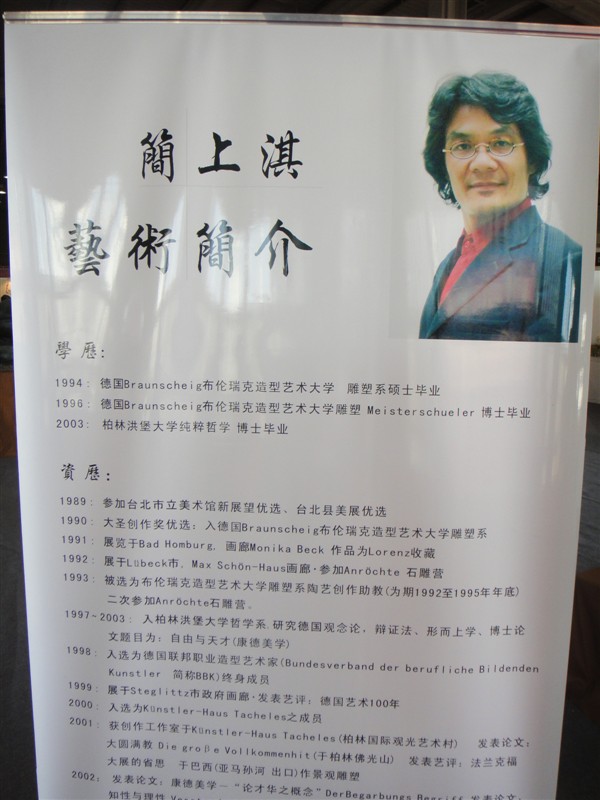 簡上淇
藝術簡介
學歷:
1994: 德国Braunscheig布伦瑞克造型艺术大学 雕塑系硕士毕业
1996: 德国Braunscheig布伦瑞克造型艺术大学雕塑 Meisterschueler 博士毕业
2003: 柏林洪堡大学纯粹哲学 博士毕业
資歷:
1989: 参加台北市立美术馆新展望优选、台北县美展优选
1990: 大圣创作奖优选: 入德国Braunscheig布伦瑞克造型艺术大学雕塑系
1991: 展览于Bad Homburg, 画廊Monika Beck 作品为Lorenz收藏
1992: 展于Lübeck市, Max Schön-Haus画廊·参加Anröchte 石雕营
1993: 被选为布伦瑞克造型艺术大学雕塑系陶艺创作助教(为期1992至1995年年底)
二次参加Anröchte石雕营。
1997~2003: 入柏林洪堡大学哲学系.研究德国观念论, 辩证法、形而上学、博士论
文题目为: 自由与天才(康德美学)
1998: 入选为德国联邦职业造型艺术家(Bundesverband der berufliche Bildenden
Kunstler 简称BBK)终身成员
1999: 展于Steglittz市政府画廊·发表艺评: 德国艺术100年
2000: 入选为Künstler-Haus Tacheles之成员
2001: 获创作工作室于Künstler-Haus Tacheles(柏林国际观光艺术村) 发表论文:
大圆满教 Die große Vollkommenhit(于柏林佛光山) 发表艺评: 法兰克福
大展的省思 于巴西(亚马孙河 出口)作景观雕塑
2002: 发表论文: 康德美学—“论才华之概念”DerBegarbungs Begriff 发表论文:
知性与理性